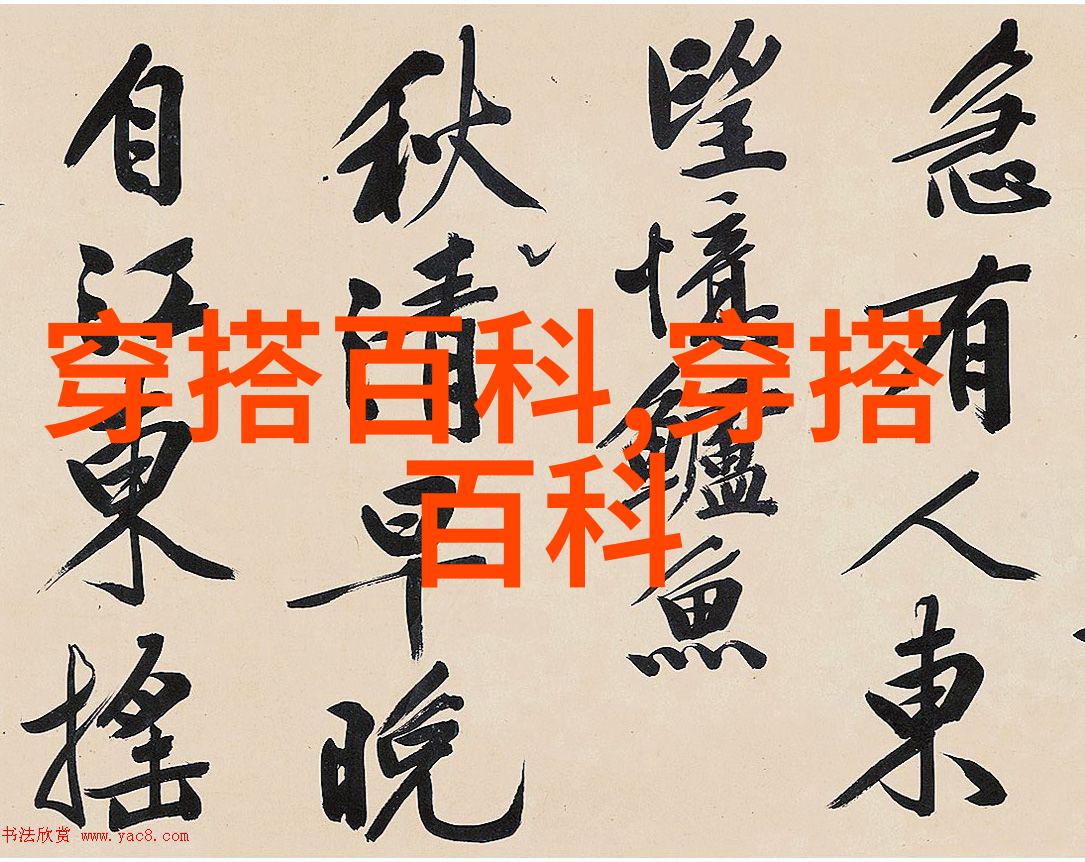 急有人東
望憶鱸魚
秋清早晚
自江東搖
穿搭百科,穿搭
百科
书法欣赏 www.yac8.com